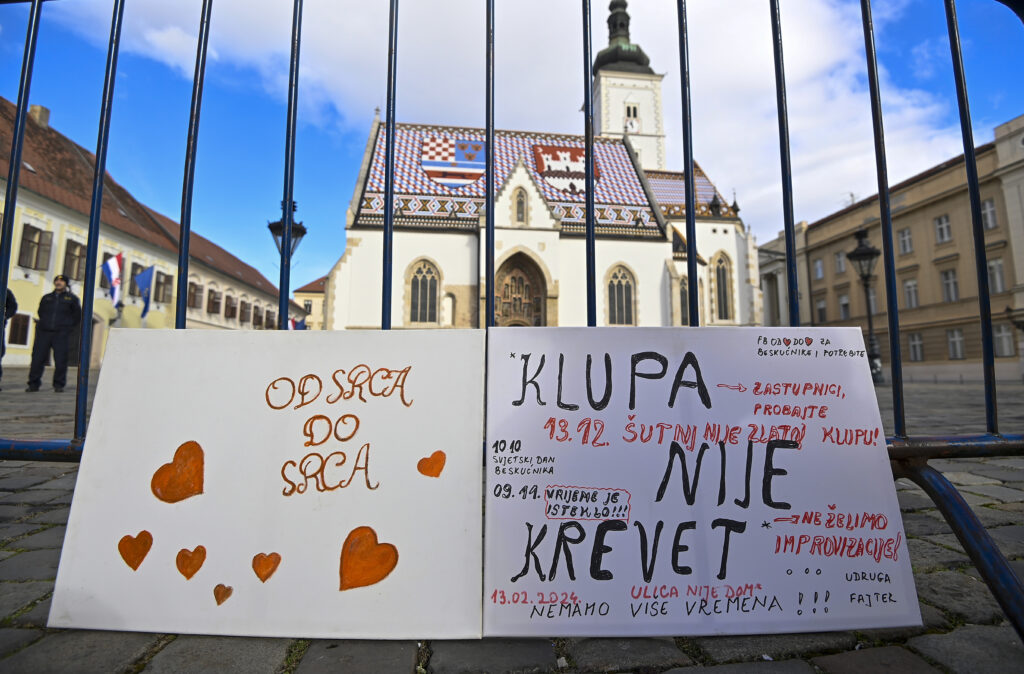 OD SRCA
DO
SRCA
FB OD♥DO♥ ZA
BESKUĆNIKE I POTREBITE
*KLUPA
→ ZASTUPNICI,
PROBAJTE
KLUPU!
13.12. ŠUTNJ NIJE ZLATO!
10 10
SVJETSKI DAN
BESKUĆNIKA
NIJE
09.11. VRIJEME JE
ISTEKLO!!!
KREVET
*→ NE ŽELIMO
IMPROVIZACIJE!
13.02.2024.
ULICA NIJE DOM*
NEMAMO VISE VREMENA !!!
UDRUGA
FAJTER